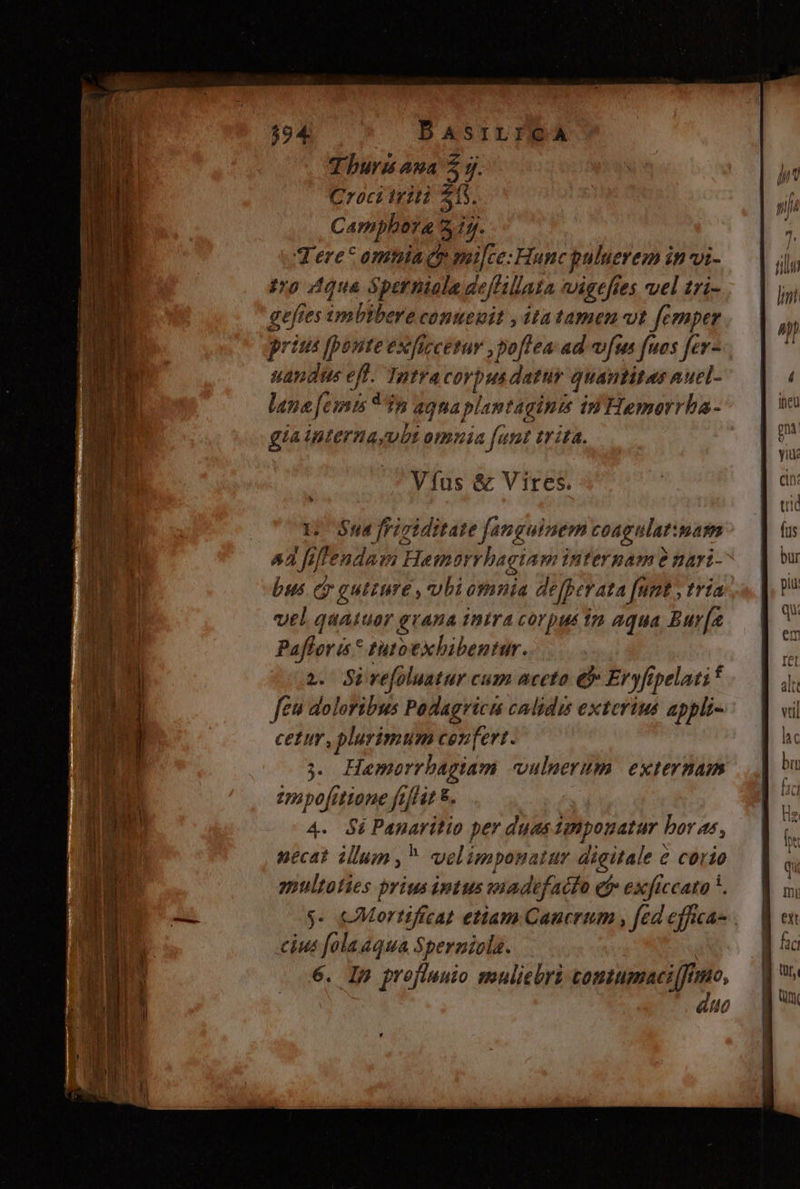 394 BASILICA
Thuris ana ℥ ij.
Croci triti ℥ß.
Camphoræ ʒ iij.
Tere ᶜ omnia & misce: Hunc puluerem in vi-
tro Aqua Sperniolæ destillata vigesies vel tri-
gesies imbibere conuenit, ita tamen vt semper
prius sponte exsiccetur, postea ad vsus suos ser-
uandus est. Intra corpus datur quantitas auel-
lanæ semis ᵈ in aqua plantaginis in Hemorrha-
gia interna, vbi omnia sunt trita.
Vsus & Vires.
1. Sua frigiditate sanguinem coagulat: nam
ad sistendam Hemorrhagiam internam è nari-
bus & gutture, vbi omnia desperata sunt, tria
vel quatuor grana intra corpus in aqua Bursæ
Pastoris ᵉ tutò exhibentur.
2. Si resoluatur cum aceto & Erysipelati ᶠ
seu doloribus Podagricis calidis exterius appli-
cetur, plurimum confert.
3. Hemorrhagiam vulnerum externam
impositione sistit ᵍ.
4. Si Panaritio per duas imponatur horas,
necat illum, ʰ vel imponatur digitale è corio
multoties prius intus madefacto & exsiccato ⁱ.
5. Mortificat etiam Cancrum, sed effica-
cius sola aqua Sperniolæ.
6. In profluuio muliebri contumacissimo,
duo